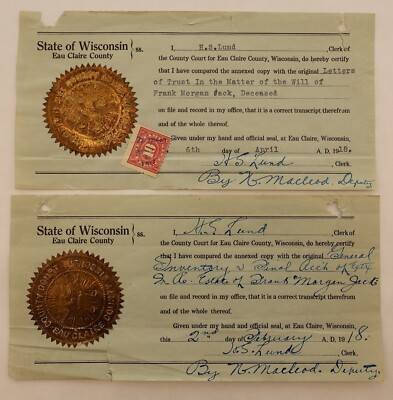 State of Wisconsin
Eau Claire County
ss.
I, H.S.Lund Clerk of
the County Court for Eau Claire County, Wisconsin, do hereby certify
that I have compared the annexed copy with the original Letters
of Trust In the Matter of the Will of
Frank Morgan Jack, Deceased
on file and record in my office, that it is a correct transcript therefrom
and of the whole thereof.
Given under my hand and official seal, at Eau Claire, Wisconsin,
6th day of April A. D. 1918.
H S Lund Clerk.
By N. Macleod. Deputy
10
State of Wisconsin
Eau Claire County
ss.
I, H.S. Lund Clerk of
the County Court for Eau Claire County, Wisconsin, do hereby certify
that I have compared the annexed copy with the original General
Inventory & Final Acct of
In re. Estate of Frank Morgan Jack
on file and record in my office, that it is a correct transcript therefrom
and of the whole thereof.
Given under my hand and official seal, at Eau Claire, Wisconsin,
this 2nd day of February A. D. 1918.
H.S. Lund Clerk.
By N. Macleod. Deputy.
EAU CLAIRE